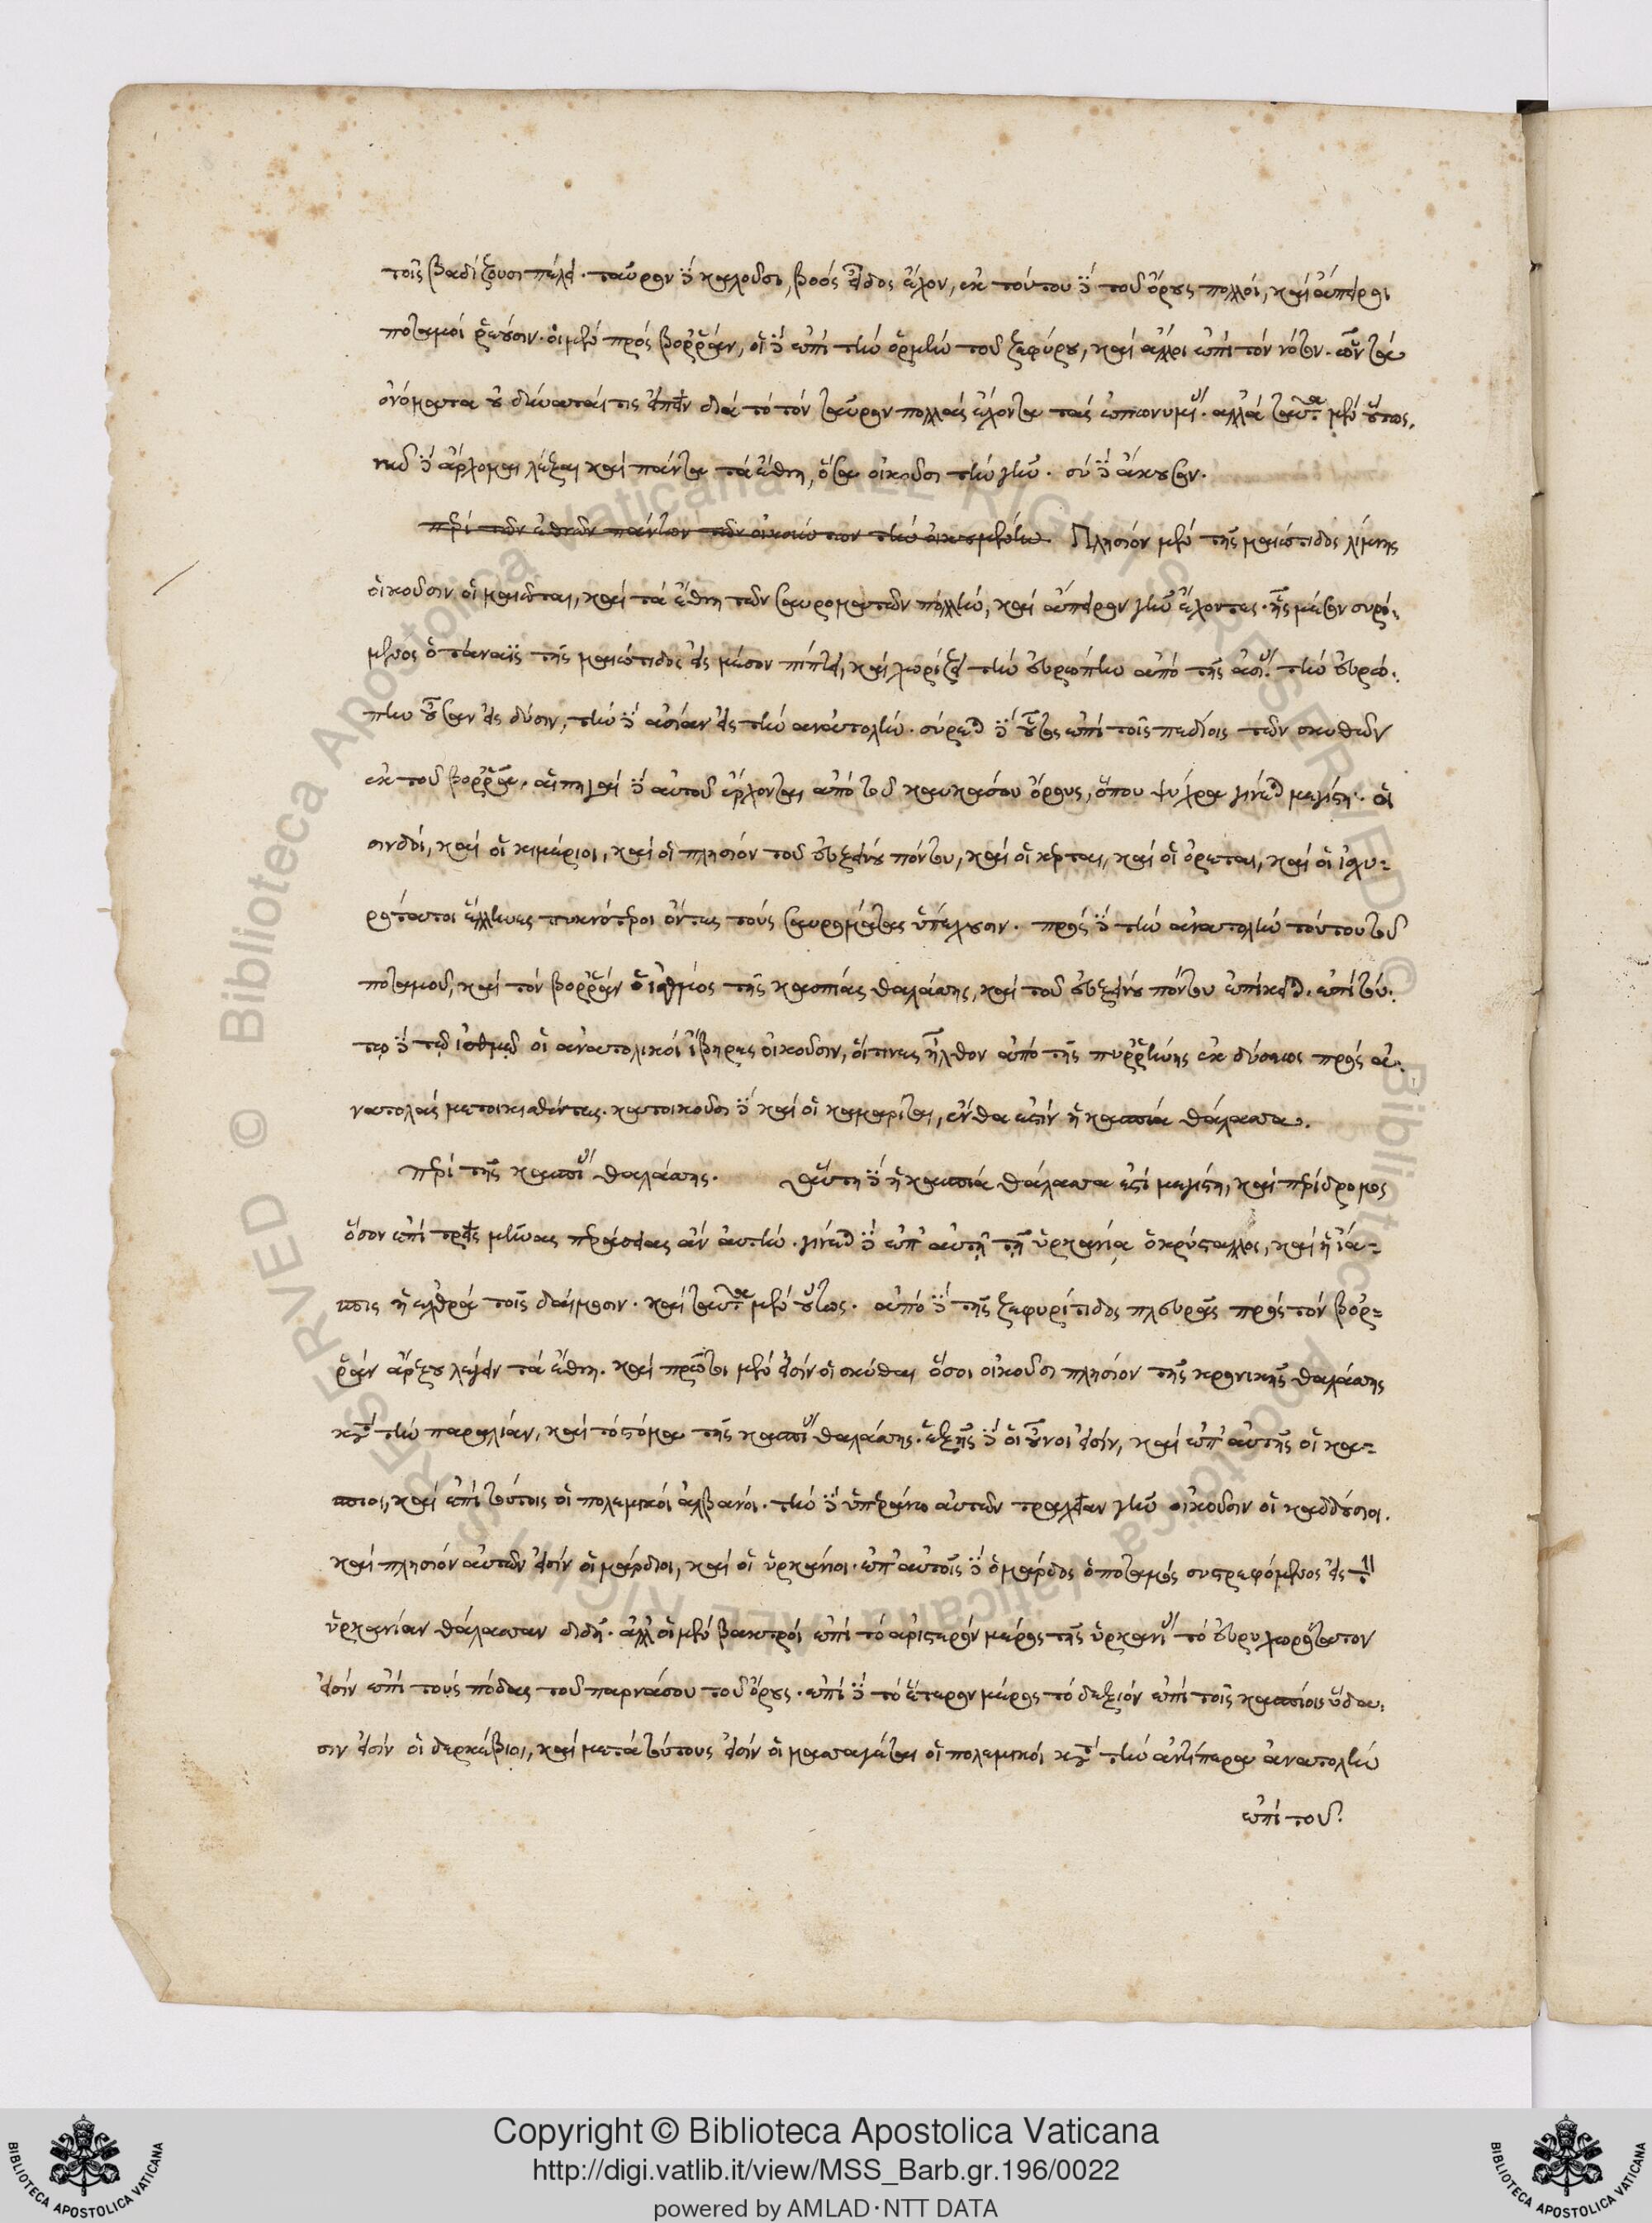 τοῖς βαδίζουσι πέλει. ταῦρον δὲ καλοῦσι, βοὸς εἶδος ἔχον, ἐκ τούτου δὲ τοῦ ὄρους πολλοὶ, καὶ ἄπειροι
ποταμοὶ ῥέουσιν. οἱ μὲν πρὸς βοῤῥᾶν, οἱ δὲ ἐπὶ τὴν ὁρμὴν τοῦ ζεφύρου, καὶ ἄλλοι ἐπὶ τὸν νότον. ὧν τὰ
ὀνόματα οὐ δύναταί τις εἰπεῖν διὰ τὸ τὸν ταῦρον πολλὰς ἔχοντα τὰς ἐπωνυμίας. ἀλλὰ ταῦτα μὲν οὕτως.
νῦν δὲ ἄρχομαι λέξαι καὶ πάντα τὰ ἔθνη, ὅσα οἰκοῦσι τὴν γῆν. σὺ δὲ ἄκουσον.
περὶ τῶν ἐθνῶν πάντων τῶν οἰκούντων τὴν οἰκουμένην. Πλησίον μὲν τῆς μαιώτιδος λίμνης
οἰκοῦσιν οἱ μαιῶται, καὶ τὰ ἔθνη τῶν σαυροματῶν πολλὴν, καὶ ἄπειρον γῆν ἔχοντες. ἧς μέσον συρό-
μενος ὁ τάναϊς τῆς μαιώτιδος εἰς μέσον πίπτει, καὶ χωρίζει τὴν εὐρώπην ἀπὸ τῆς ἀσίας. τὴν εὐρώ-
πην οὖσαν εἰς δύσιν, τὴν δὲ ἀσίαν εἰς τὴν ἀνατολήν. σύρεται δὲ οὗτος ἐπὶ τοῖς πεδίοις τῶν σκυθῶν
ἐκ τοῦ βοῤῥᾶ. αἱ πηγαὶ δὲ αὐτοῦ ἔρχονται ἀπὸ τοῦ καυκάσου ὄρους, ὅπου ψύχρα γίνεται μεγίστη. οἱ
σινδοὶ, καὶ οἱ κιμέριοι, καὶ οἱ πλησίον τοῦ εὐξείνου πόντου, καὶ οἱ κέρται, καὶ οἱ ὀρεται, καὶ οἱ ἰσχυ-
ρότατοι ἕλληνες πυκνότεροι ὄντες τοὺς σαυρομάτας ὑπέχουσιν. πρὸς δὲ τὴν ἀνατολὴν τούτου τοῦ
ποταμοῦ, καὶ τὸν βοῤῥᾶν ὁ ἰσθμὸς τῆς κασπίας θαλάσσης, καὶ τοῦ εὐξείνου πόντου ἐπίκειται. ἐπὶ τού-
τῳ δὲ τῷ ἰσθμῷ οἱ ἀνατολικοὶ ἴβηρες οἰκοῦσιν, οἵτινες ἦλθον ἀπὸ τῆς πυῤῥήνης ἐκ δύσεως πρὸς ἀ-
νατολὰς μετοικισθέντες. κατοικοῦσι δὲ καὶ οἱ καμαρίται, ἔνθα ἐστὶν ἡ κασπία θάλασσα.
περὶ τῆς κασπίας θαλάσσης. αὕτη δὲ ἡ κασπία θάλασσα ἐστὶ μεγίστη, καὶ περίδρομος
ὅσον ἐπὶ τρεῖς μῆνας περάσειας ἂν αὐτήν. γίνεται δὲ ἐπ' αὐτῇ τῇ ὑρκανίᾳ ὁ κρύσταλλος, καὶ ἡ ἴα-
σπις ἡ ἐχθρὰ τοῖς δαίμοσιν. καὶ ταῦτα μὲν οὕτως. ἀπὸ δὲ τῆς ζεφυρίτιδος πλευρᾶς πρὸς τὸν βοῤ-
ῥᾶν ἄρξου λέγειν τὰ ἔθνη. καὶ πρῶτοι μὲν εἰσὶν οἱ σκύθαι ὅσοι οἰκοῦσι πλησίον τῆς κρονικῆς θαλάσσης
κατὰ τὴν παραλίαν, καὶ τὸ στόμα τῆς κασπίας θαλάσσης. ἑξῆς δὲ οἱ οὖνοι εἰσὶν, καὶ ἐπ' αὐτῆς οἱ κα-
σπιοι, καὶ ἐπὶ τούτοις οἱ πολεμικοὶ ἀλβανοί. τὴν δὲ ὑπεράνω αὐτῶν τραχεῖαν γῆν οἰκοῦσιν οἱ καδδούσιοι.
καὶ πλησίον αὐτῶν εἰσὶν οἱ μάρδιοι, καὶ οἱ ὑρκάνιοι. ἐπ' αὐτοῖς δὲ ὁ μάρδος ὁ ποταμὸς συστρεφόμενος εἰς τὴν
ὑρκανίαν θάλασσαν διδῆ. ἀλλ' οἱ μὲν βακτροὶ ἐπὶ τὸ ἀριστερὸν μέρος τῆς ὑρκανίας τὸ εὐρυχωρότατον
εἰσὶν ἐπὶ τοὺς πόδας τοῦ παρνάσου τοῦ ὄρους. ἐπὶ δὲ τὸ ἕτερον μέρος τὸ δεξιὸν ἐπὶ τοῖς κασπίοις ὕδα-
σιν εἰσὶν οἱ δερκέβιοι, καὶ μετὰ τούτους εἰσὶν οἱ μασσαγέται οἱ πολεμικοὶ κατὰ τὴν ἀντίπερα ἀνατολὴν
ἐπὶ τοῦ
Copyright © Biblioteca Apostolica Vaticana
http://digi.vatlib.it/view/MSS_Barb.gr.196/0022
powered by AMLAD·NTT DATA